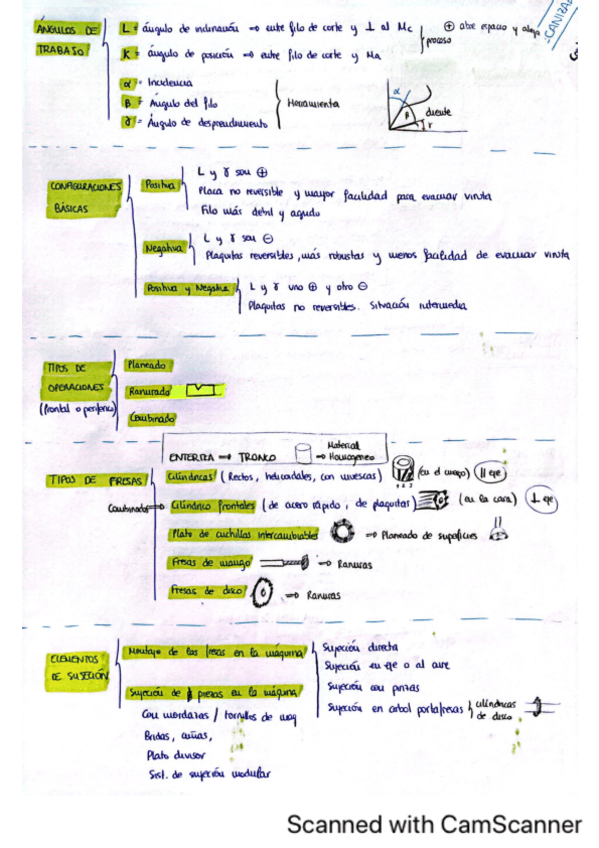 ÁNGULOS DE TRABAJO
L = ángulo de inclinación → entre filo de corte y ⊥ al Mc
K = ángulo de posición → entre filo de corte y Ma
proceso
⊕ abre espacio y aleja
α = Incidencia
β = Ángulo del filo
γ = Ángulo de desprendimiento
Herramienta
α
β
γ
diente
CONFIGURACIONES BÁSICAS
Positiva
L y γ son ⊕
Placa no reversible y mayor facilidad para evacuar viruta
Filo más debil y agudo
Negativa
L y γ son ⊖
Plaquitas reversibles, más robustas y menos facilidad de evacuar viruta
Positiva y Negativa
L y γ uno ⊕ y otro ⊖
Plaquitas no reversibles. Situación intermedia
TIPOS DE OPERACIONES
(frontal o periferica)
Planeado
Ranurado
Combinado
ENTERIZA → TRONCO
Material
→ Homogeneo
TIPOS DE FRESAS
Cilíndricas (Rectos, helicoidales, con muescas)
(en el cuerpo) || eje
Combinados → Cilíndrico frontales (de acero rápido, de plaquitas)
(en la cara) ⊥ eje
Plato de cuchillas intercambiables
→ Planeado de superficies
Fresas de mango
→ Ranuras
Fresas de disco
→ Ranuras
ELEMENTOS DE SUJECIÓN
Montaje de las fresas en la máquina
Sujeción directa
Sujeción en eje o al aire
Sujeción con pinzas
Sujeción en arbol portafresas
cilíndricas
de disco
Sujeción de piezas en la máquina
Con mordazas / tornillos de maq
Bridas, cuñas,
Plato divisor
Sist. de sujeción modular
Scanned with CamScanner